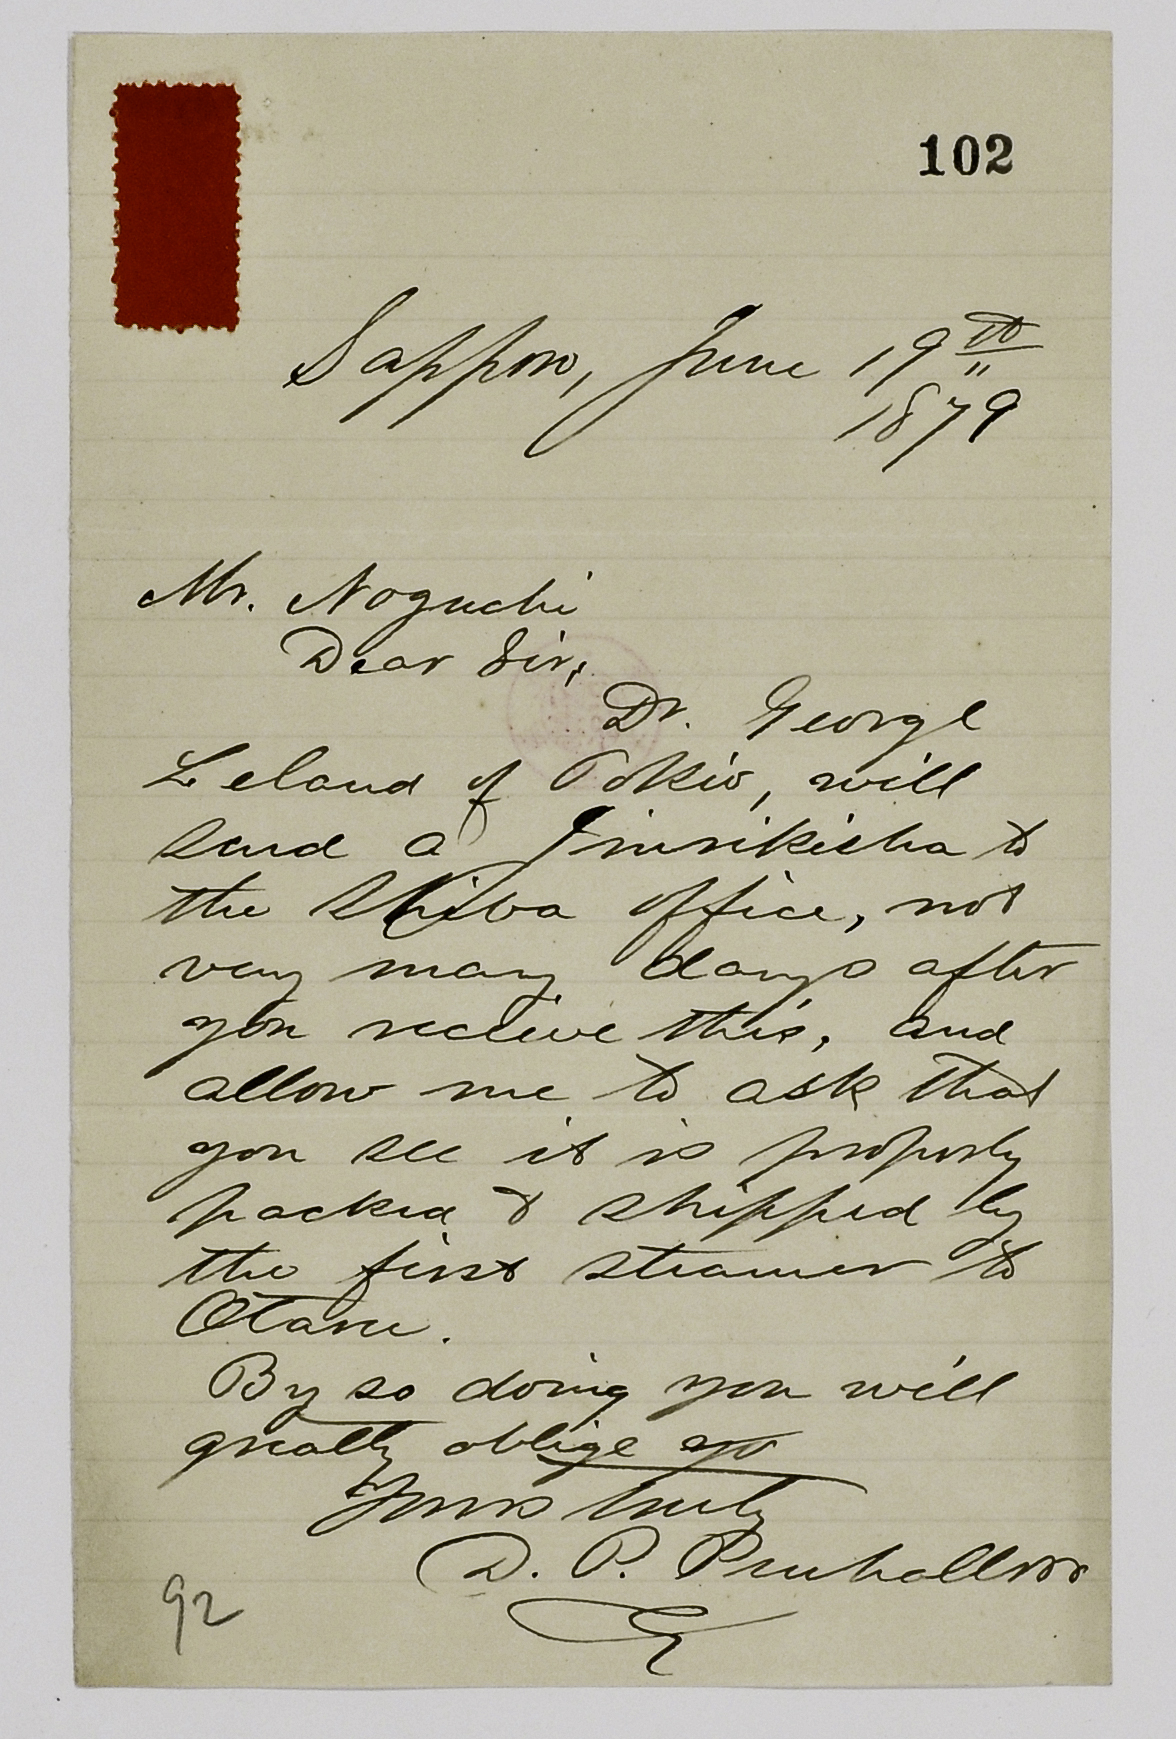 102
Sapporo, June 19th
1879
Mr. Noguchi
Dear Sir,
Dr. George
Leland of Tokio, will
send a Jinrikisha to
the Shiba office, not
very many days after
you receive this, and
allow me to ask that
you see it is properly
packed & shipped by
the first steamer to
Otaru.
By so doing you will
greatly oblige
Yours truly
D. P. Penhallow
92